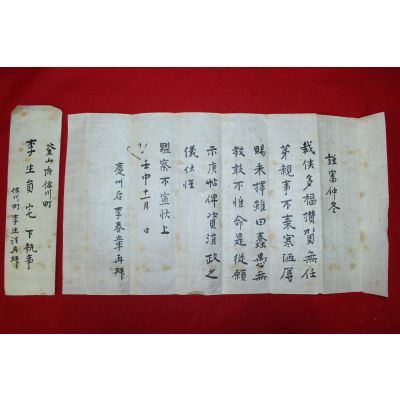 謹審仲冬
体多福攢賀無任
第親事不棄寒陋辱
賜采擇雖曰蠢愚無
敎敢不惟命是從願
示庚帖俾資涓政之
儀伏惟
鑑察不宣狀上
壬申十一月 日
慶州后李春章再拜
釜山府佐川町
李生員宅 下執事
佐川町 李生 再拜